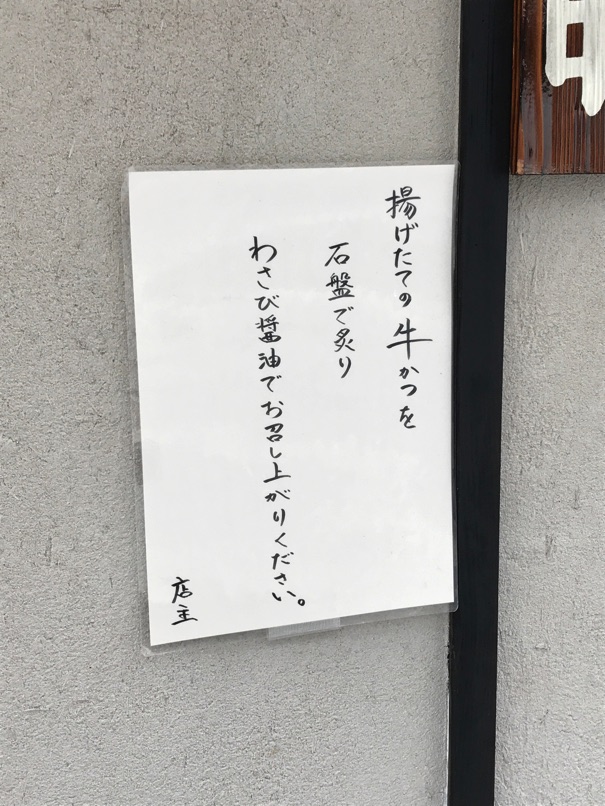 揚げたての牛かつを
石盤で炙り
わさび醤油でお召し上がりください。
店主